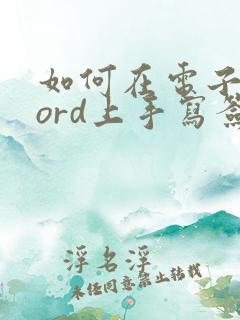 如何在電子
ord上手寫簽
浮名浮
未經同意禁止轉載